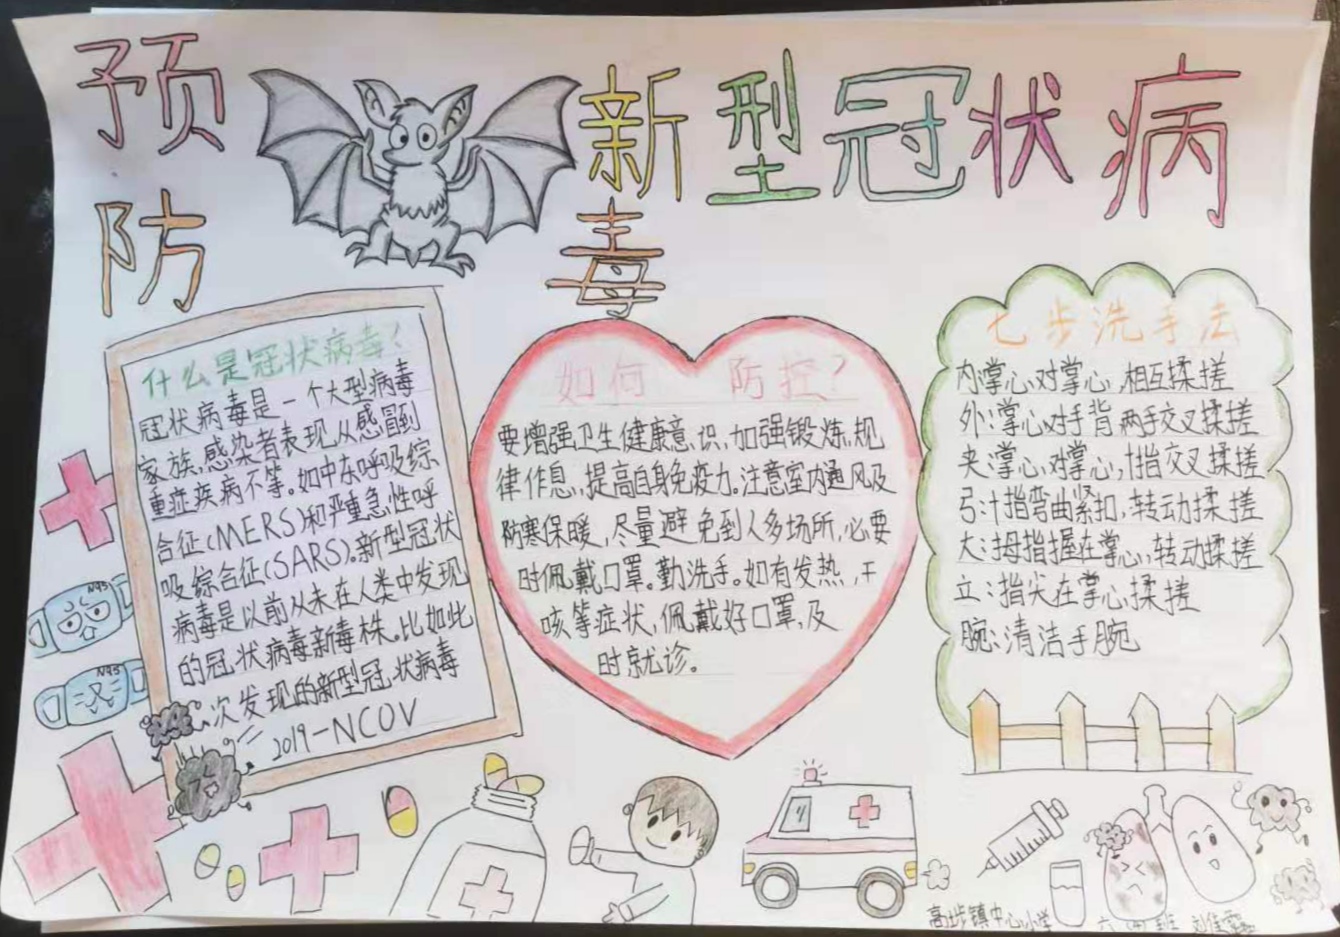 预防新型冠状病毒
什么是冠状病毒?
冠状病毒是一个大型病毒
家族,感染者表现从感冒到
重症疾病不等。如中东呼吸综
合征(MERS)和严重急性呼
吸综合征(SARS)。新型冠状
病毒是以前从未在人类中发现
的冠状病毒新毒株。比如此
次发现的新型冠状病毒
2019-NCOV
N95
N95
如何防控?
要增强卫生健康意识,加强锻炼,规
律作息,提高自身免疫力。注意室内通风及
防寒保暖,尽量避免到人多场所,必要
时佩戴口罩。勤洗手。如有发热,干
咳等症状,佩戴好口罩,及
时就诊。
七步洗手法
内:掌心对掌心,相互揉搓
外:掌心对手背两手交叉揉搓
夹:掌心对掌心,十指交叉揉搓
弓:十指弯曲紧扣,转动揉搓
大:拇指握在掌心,转动揉搓
立:指尖在掌心揉搓
腕:清洁手腕
高埗镇中心小学 六 班 刘佳